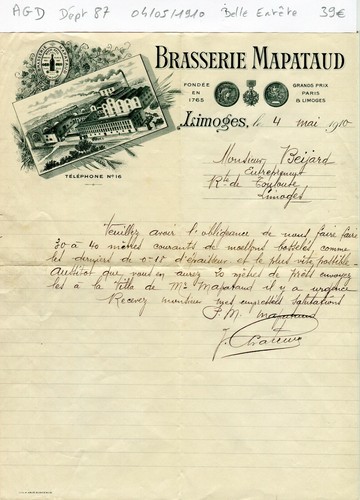 AGD Dépt 87 04/05/1910 Belle Entête 39€
BRASSERIE MAPATAUD
FONDÉE EN 1765
GRANDS PRIX PARIS & LIMOGES
Limoges, le 4 mai 1910
TÉLÉPHONE Nº 16
Monsieur Béijard
Entrepreneur
Rte de Toulouse
Limoges
Veuillez avoir l'obligeance de nous faire faire
30 à 40 mètres courants de moellons bottelés, comme
les derniers de 0-18 d'épaisseur et le plus vite possible
Aussitôt que vous en aurez 20 mètres de prêts envoyez
les à la Villa de Mr Mapataud il y a urgence
Recevez monsieur mes empressées salutations
P. M. Mapataud